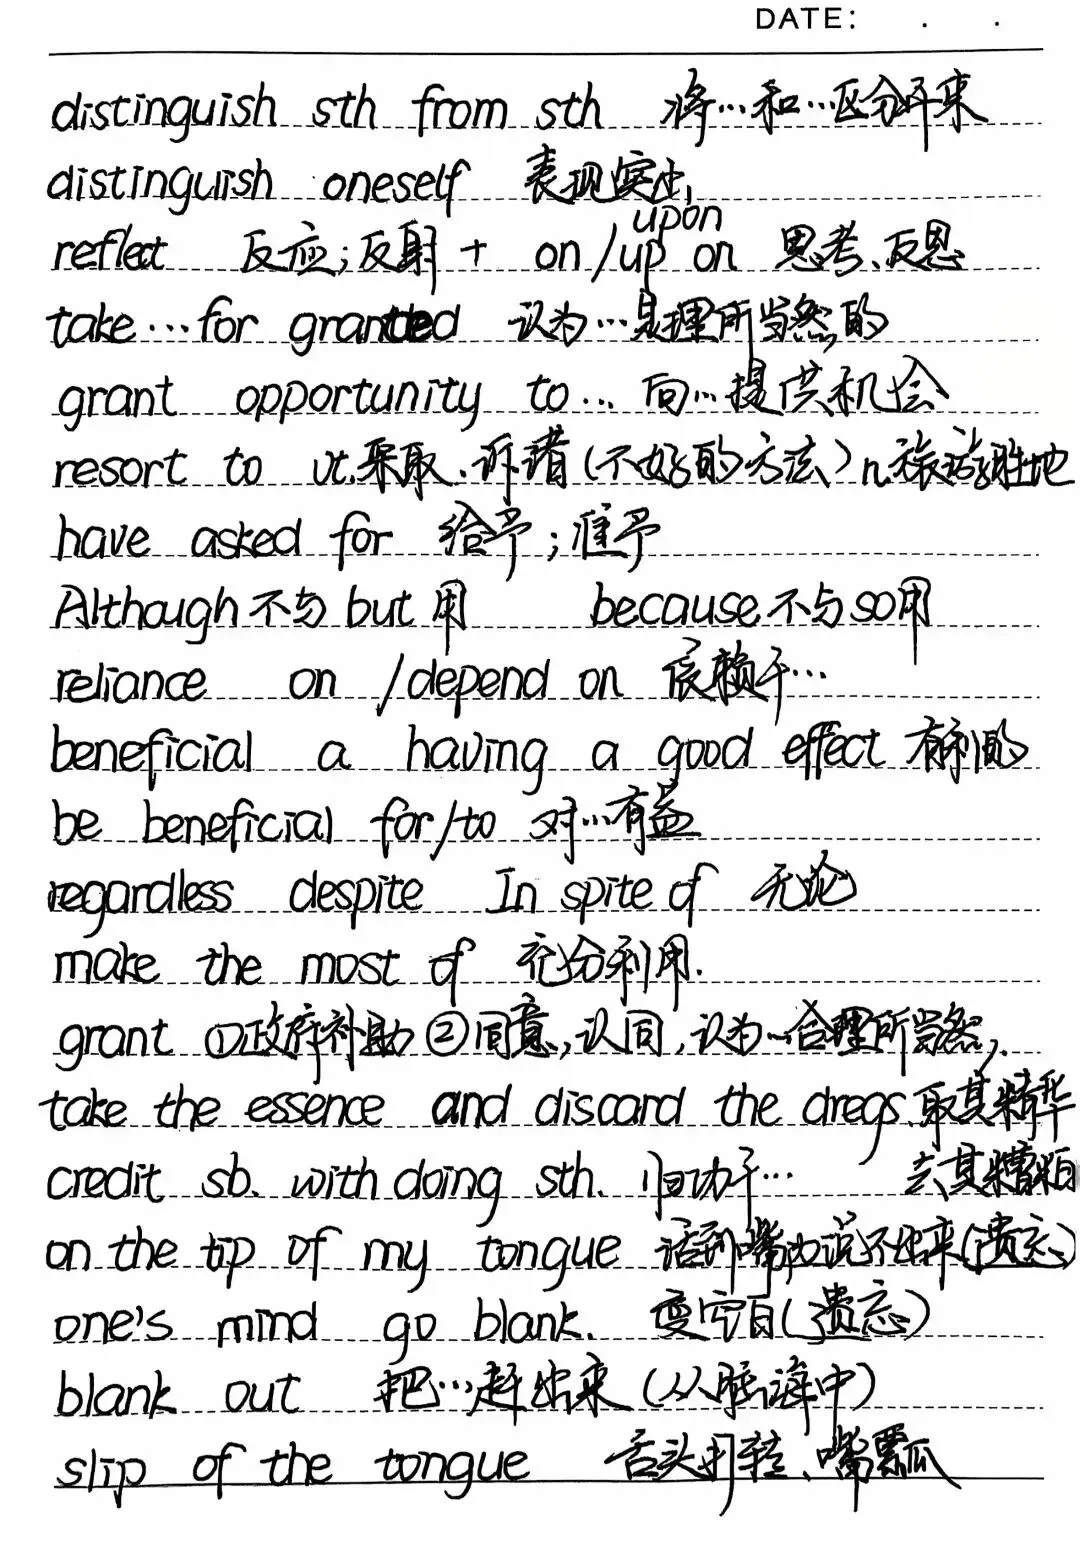 DATE: . .
distinguish sth from sth 将…和…区分开来
distinguish oneself 表现突出,
upon
reflect 反应;反射 + on/up on 思考、反思
take…for granted 认为…是理所当然的
grant opportunity to… 向…提供机会
resort to vt.采取.诉诸(不好的方法) n.旅游胜地
have asked for 给予;准予
Although不与but用 because不与so用
reliance on /depend on 依赖于…
beneficial a having a good effect 有利的
be beneficial for/to 对…有益
regardless despite In spite of 无论
make the most of 充分利用.
grant ①政府补助 ②同意,认同,认为…合理所当然,
take the essence and discard the dregs.取其精华
credit sb. with doing sth. 归功于… 去其糟粕
on the tip of my tongue 话到嘴边说不出来(遗忘)
one's mind go blank. 变空白(遗忘)
blank out 把…赶出来(从脑海中)
slip of the tongue 舌头打转、嘴瓢